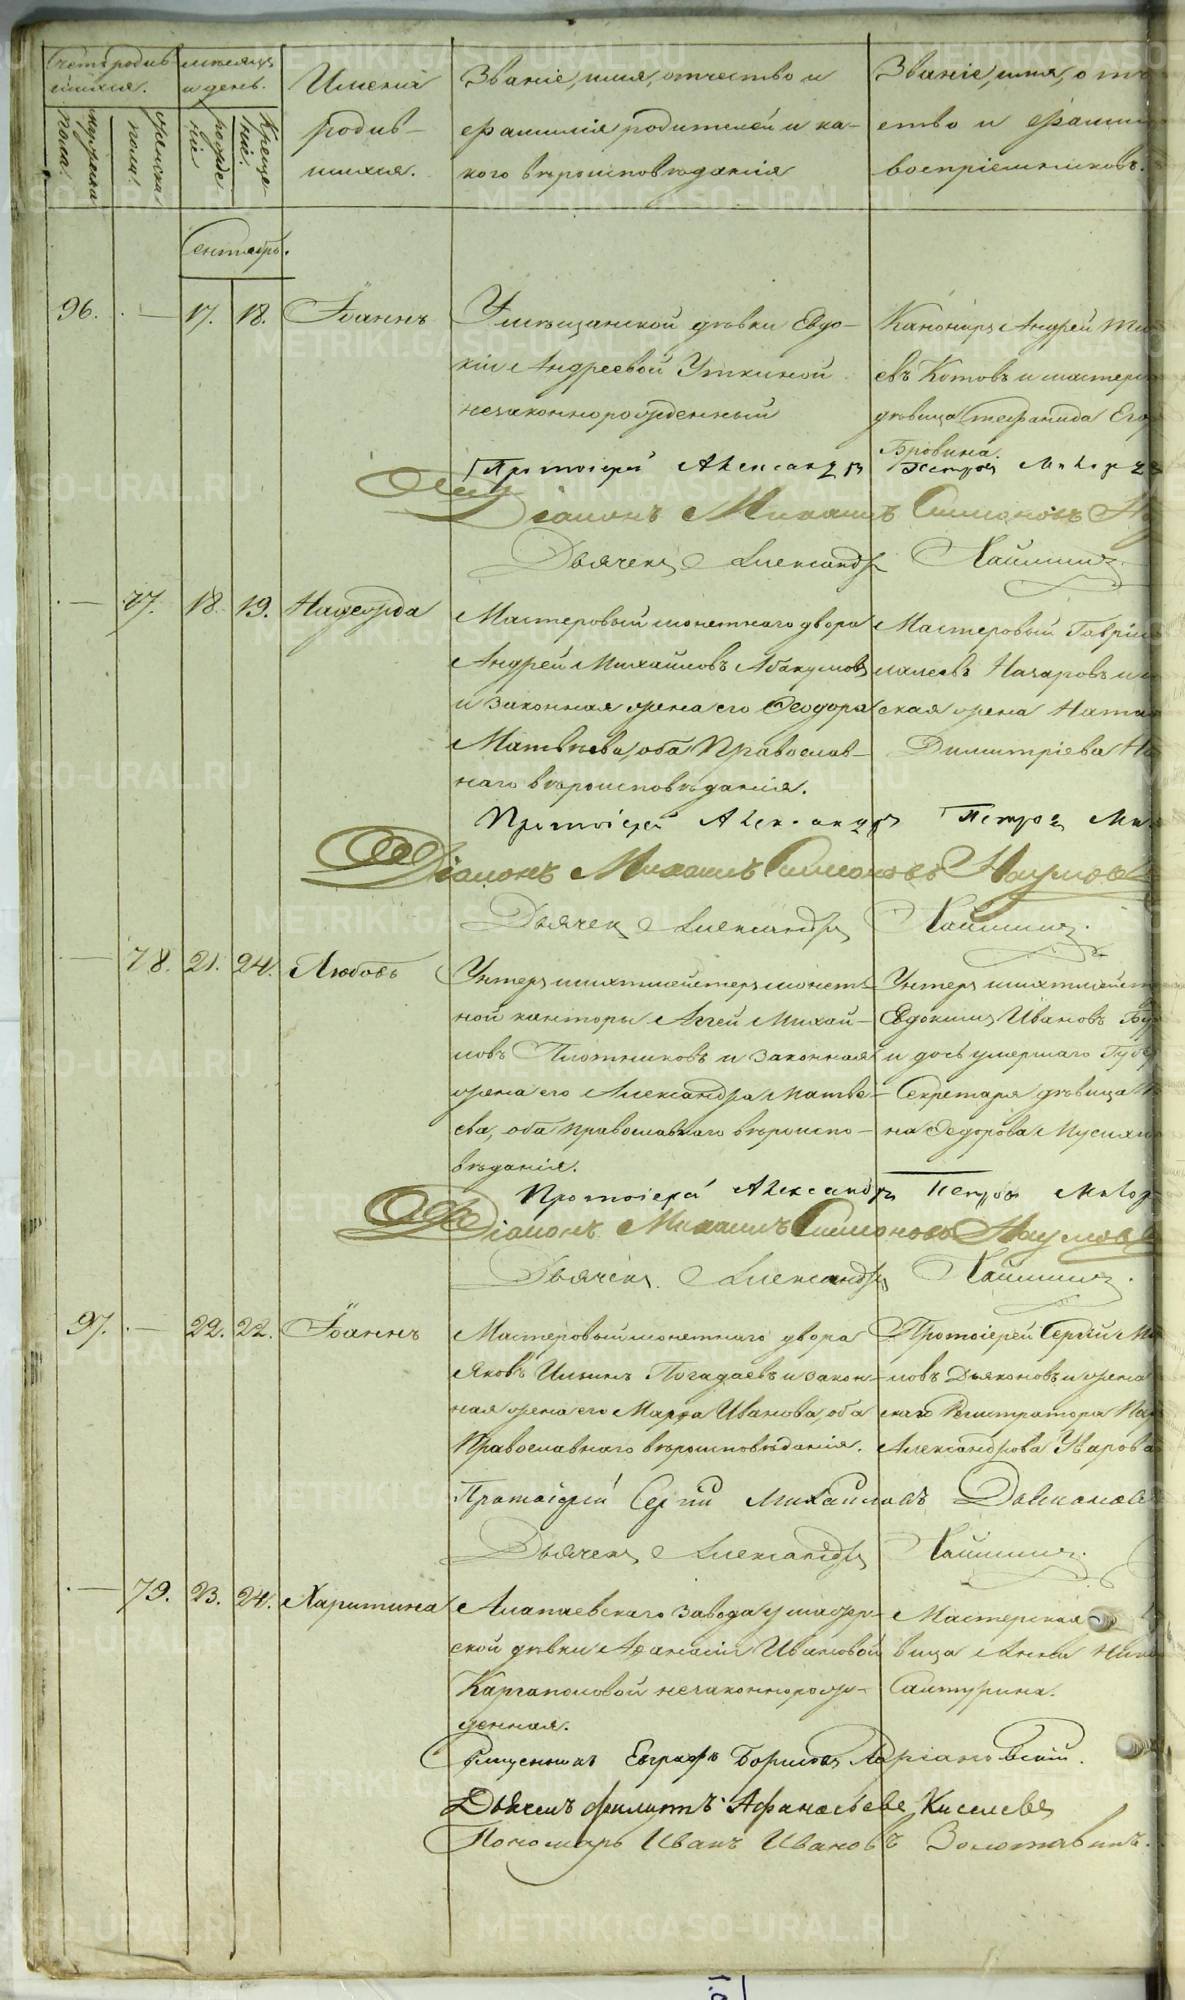 Счетъ родив
шихся.
мѣсяцъ
и день.
мужеска
пола.
женска
пола.
рожде
ніе
Креще-
ніе.
Имена
родив-
шихся.
Званіе, имя, отчество и
фамилія родителей и ка-
кого вѣроисповѣданія
Званіе, имя, отче
ство и фамил
воспріемниковъ.
Сентябрь.
96. — 17. 18. Іоаннъ
У мѣщанской дѣвки Евдо-
кіи Андреевой Уткиной
незаконнорожденный
Канониръ Андрей
евъ Котовъ и мастер
дѣвица Стефанида Его
Бровина.
Протоіерей Александръ Петровъ
Діаконъ Михаилъ Симоновъ
Дьячекъ Александръ
— 77. 18. 19. Надежда
Мастеровый монетнаго двора
Андрей Михайловъ Абакумовъ
и законная жена его Ѳеодора
Матвѣева, оба Православ-
наго вѣроисповѣданія.
Мастеровый Гавріи
Назаровъ и
ская жена Ната
Димитріева
Протоіерей Александръ Петровъ
Діаконъ Михаилъ Симоновъ Наумовъ
Дьячекъ Александръ
— 78. 21. 24. Любовь
Унтеръ шихтмейстеръ монет-
ной канторы Аггей Михай-
ловъ Плотниковъ и законная
жена его Александра Матвѣ-
ева, оба православнаго вѣроиспо-
вѣданія.
Унтеръ шихтмейст
Евдокимъ Ивановъ
и дочь умершаго Губер
Секретаря дѣвица
на Федорова Мусихи
Протоіерей Александръ Петровъ
Діаконъ Михаилъ Симоновъ Наумовъ
Дьячекъ Александръ
97. — 22. 22. Іоаннъ
Мастеровый монетнаго двора
Яковъ Ильинъ Погадаевъ и закон-
ная жена его Марѳа Иванова, оба
Православнаго вѣроисповѣданія.
Протоіерей Сергій Ми
ловъ Дьяконовъ и жена
скаго Регистратора
Александрова Уварова
Протоіерей Сергій Михайловъ Дьяконовъ
Дьячекъ Александръ
— 79. 23. 24. Харитина
Алапаевскаго завода у мастер-
ской дѣвки Аѳанасіи Ивановой
Каргаполовой незаконнорож-
денная.
Мастерская
вица Анна Ник
Сантурина.
Священникъ Евграфъ Борисовъ
Дьячекъ Филиппъ Афанасьевъ Киселевъ
Пономарь Иванъ Ивановъ Золотавинъ.
METRIKI.GASO-URAL.RU